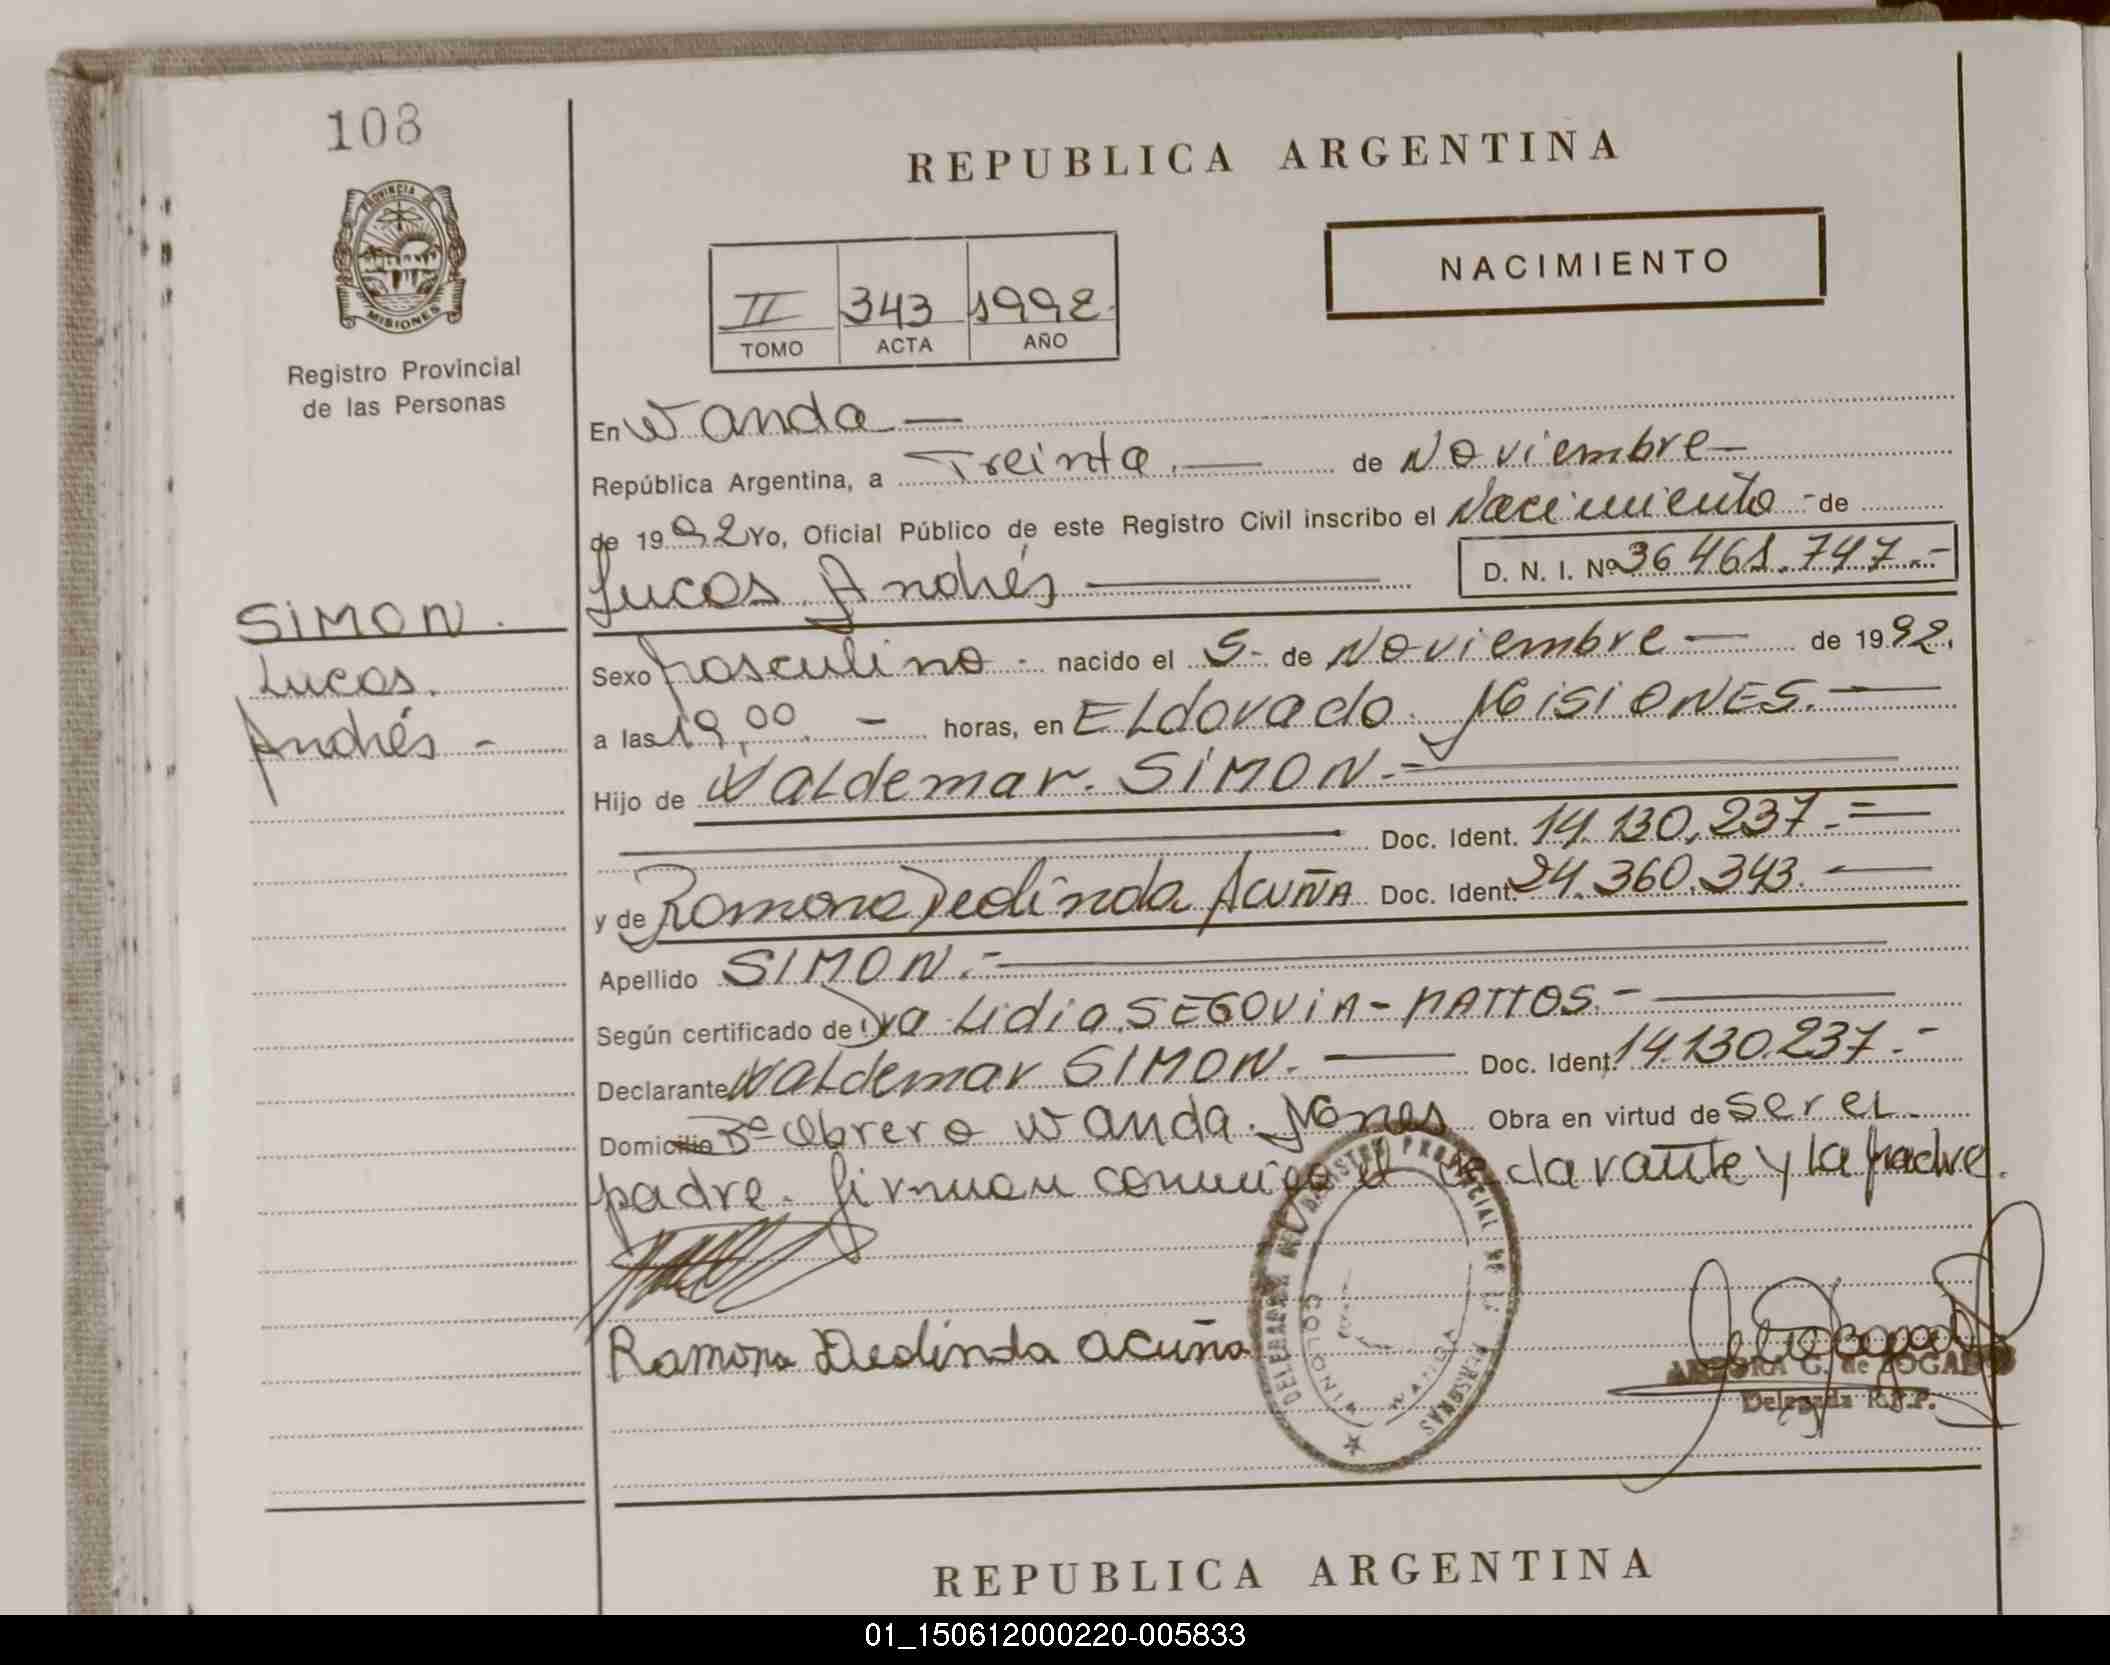 108
PROVINCIA DE
MISIONES
Registro Provincial
de las Personas
REPUBLICA ARGENTINA
NACIMIENTO
II 343 1992
TOMO ACTA AÑO
En Wanda —
República Argentina, a Treinta.— de Noviembre —
de 1992 Yo, Oficial Público de este Registro Civil inscribo el Nacimiento - de
Lucas Andrés — D. N. I. Nº 36 461.747.-
SIMON.
Lucas.
Andrés -
Sexo Masculino - nacido el 5- de Noviembre — de 1992.
a las 19,00 — horas, en ELdorado. MisiONES.—
Hijo de WALdemar. SIMON.-
Doc. Ident. 14.130.237.-
y de Ramona Deolinda AcuñA Doc. Ident. 24.360.343.—
Apellido SIMON.-
Según certificado de Dra Lidia SEGOViA - MATTOS.-
Declarante WALdemar SIMON.— Doc. Ident. 14.130.237.-
Domicilio Bº Obrero Wanda. Mnes Obra en virtud de Ser eL
padre. firman conmigo el declarante y la Madre.
Ramona Deolinda acuña
REGISTRO PROVINCIAL DE L PERSONAS
WANDA
G. de
Delegada R.P.P.
REPUBLICA ARGENTINA
01_150612000220-005833